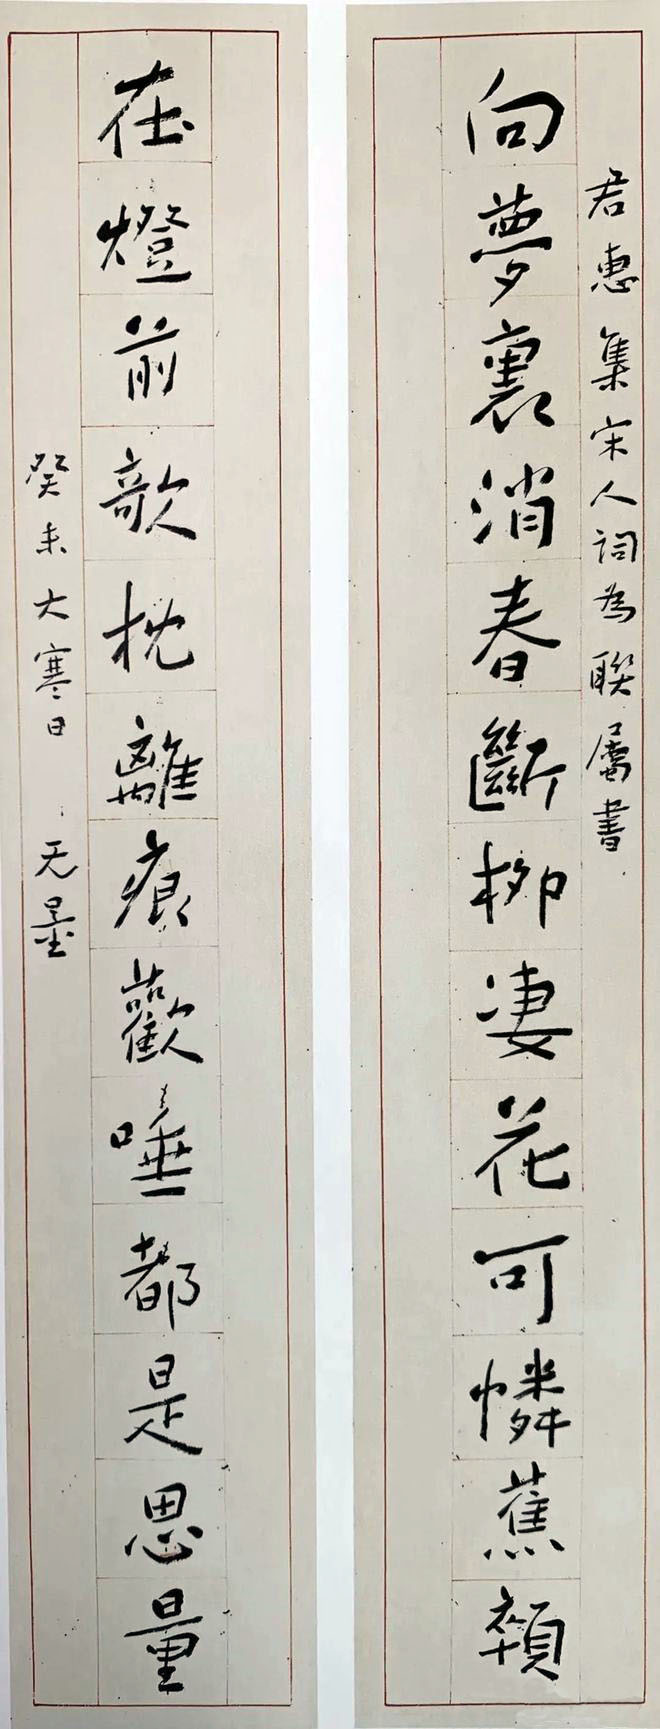 君惠集宋人词為聯屬書
向夢裏消春斷柳凄花可憐蕉顇
在燈前欹枕離痕歡唾都是思量
癸未大寒日 无量